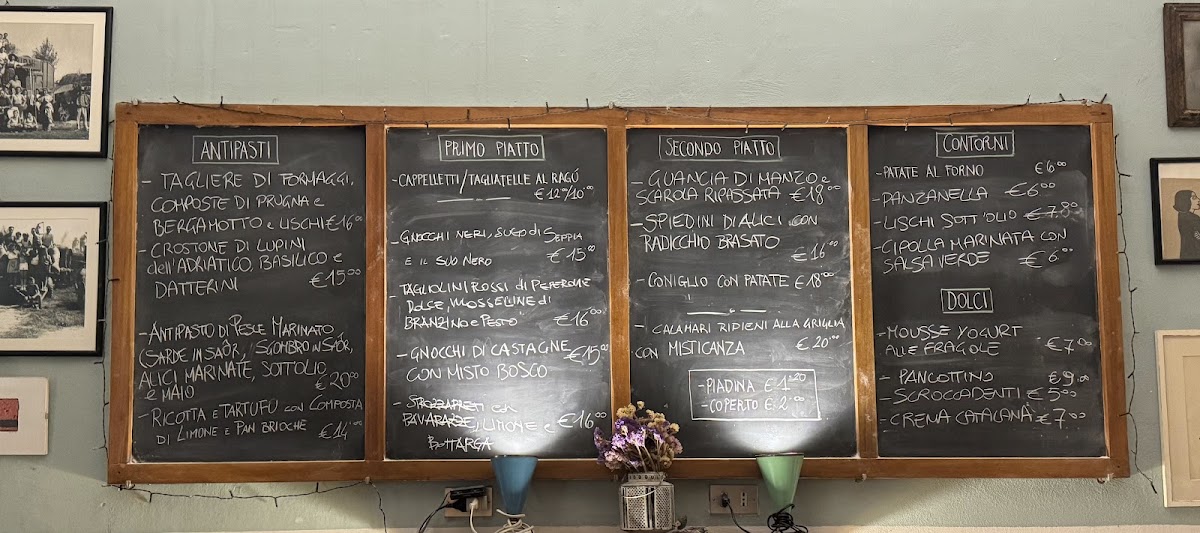 ANTIPASTI
- TAGLIERE DI FORMAGGI,
COMPOSTE DI PRUGNA e
BERGAMOTTO e LISCHI €16.00
- CROSTONE DI LUPINI
dell'ADRIATICO, BASILICO e
DATTERINI €15.00
- ANTIPASTO DI PESCE MARINATO
(SARDE IN SAÒR, SGOMBRO IN SAÒR,
ALICI MARINATE, SOTT'OLIO
e MAIO €20.00
- RICOTTA E TARTUFU CON COMPOSTA
DI LIMONE e PAN BRIOCHE €14.00
PRIMO PIATTO
- CAPPELLETTI/TAGLIATELLE AL RAGÚ
€12.00/10.00
- GNOCCHI NERI, SUGO DI SEPPIA
E IL SUO NERO €15.00
- TAGLIOLINI ROSSI DI PEPERONE
DOLCE, MOSSELLINE DI
BRANZINO E PESTO €16.00
- GNOCCHI DI CASTAGNE €15.00
CON MISTO BOSCO
- STROZZAPRETI CON
BAVARAZZE, LIMONE e €16.00
BOTTARGA
SECONDO PIATTO
- GUANCIA DI MANZO e
SCAROLA RIPASSATA €18.00
- SPIEDINI DI ALICI CON
RADICCHIO BRASATO
€16.00
- CONIGLIO CON PATATE €18.00
- CALAMARI RIPIENI ALLA GRIGLIA
CON MISTICANZA €20.00
- PIADINA €1.20
- COPERTO €2.00
CONTORNI
- PATATE AL FORNO €6.00
- PANZANELLA €6.00
- LISCHI SOTT'OLIO €7.00
- CIPOLLA MARINATA CON
SALSA VERDE €6.00
DOLCI
- MOUSSE YOGURT
ALLE FRAGOLE €7.00
- PANCOTTINO €9.00
- SCROCCADENTI €5.00
- CREMA CATALANA €7.00